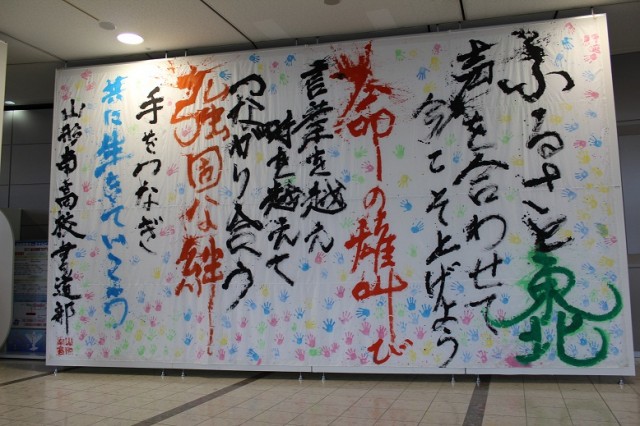 ふるさと東北
声を合わせて
今こそ上げよう
命の雄叫び
言葉を越え
時を越えて
つながり合う
強固な絆
手をつなぎ
共に生きていこう
山形南高校書道部